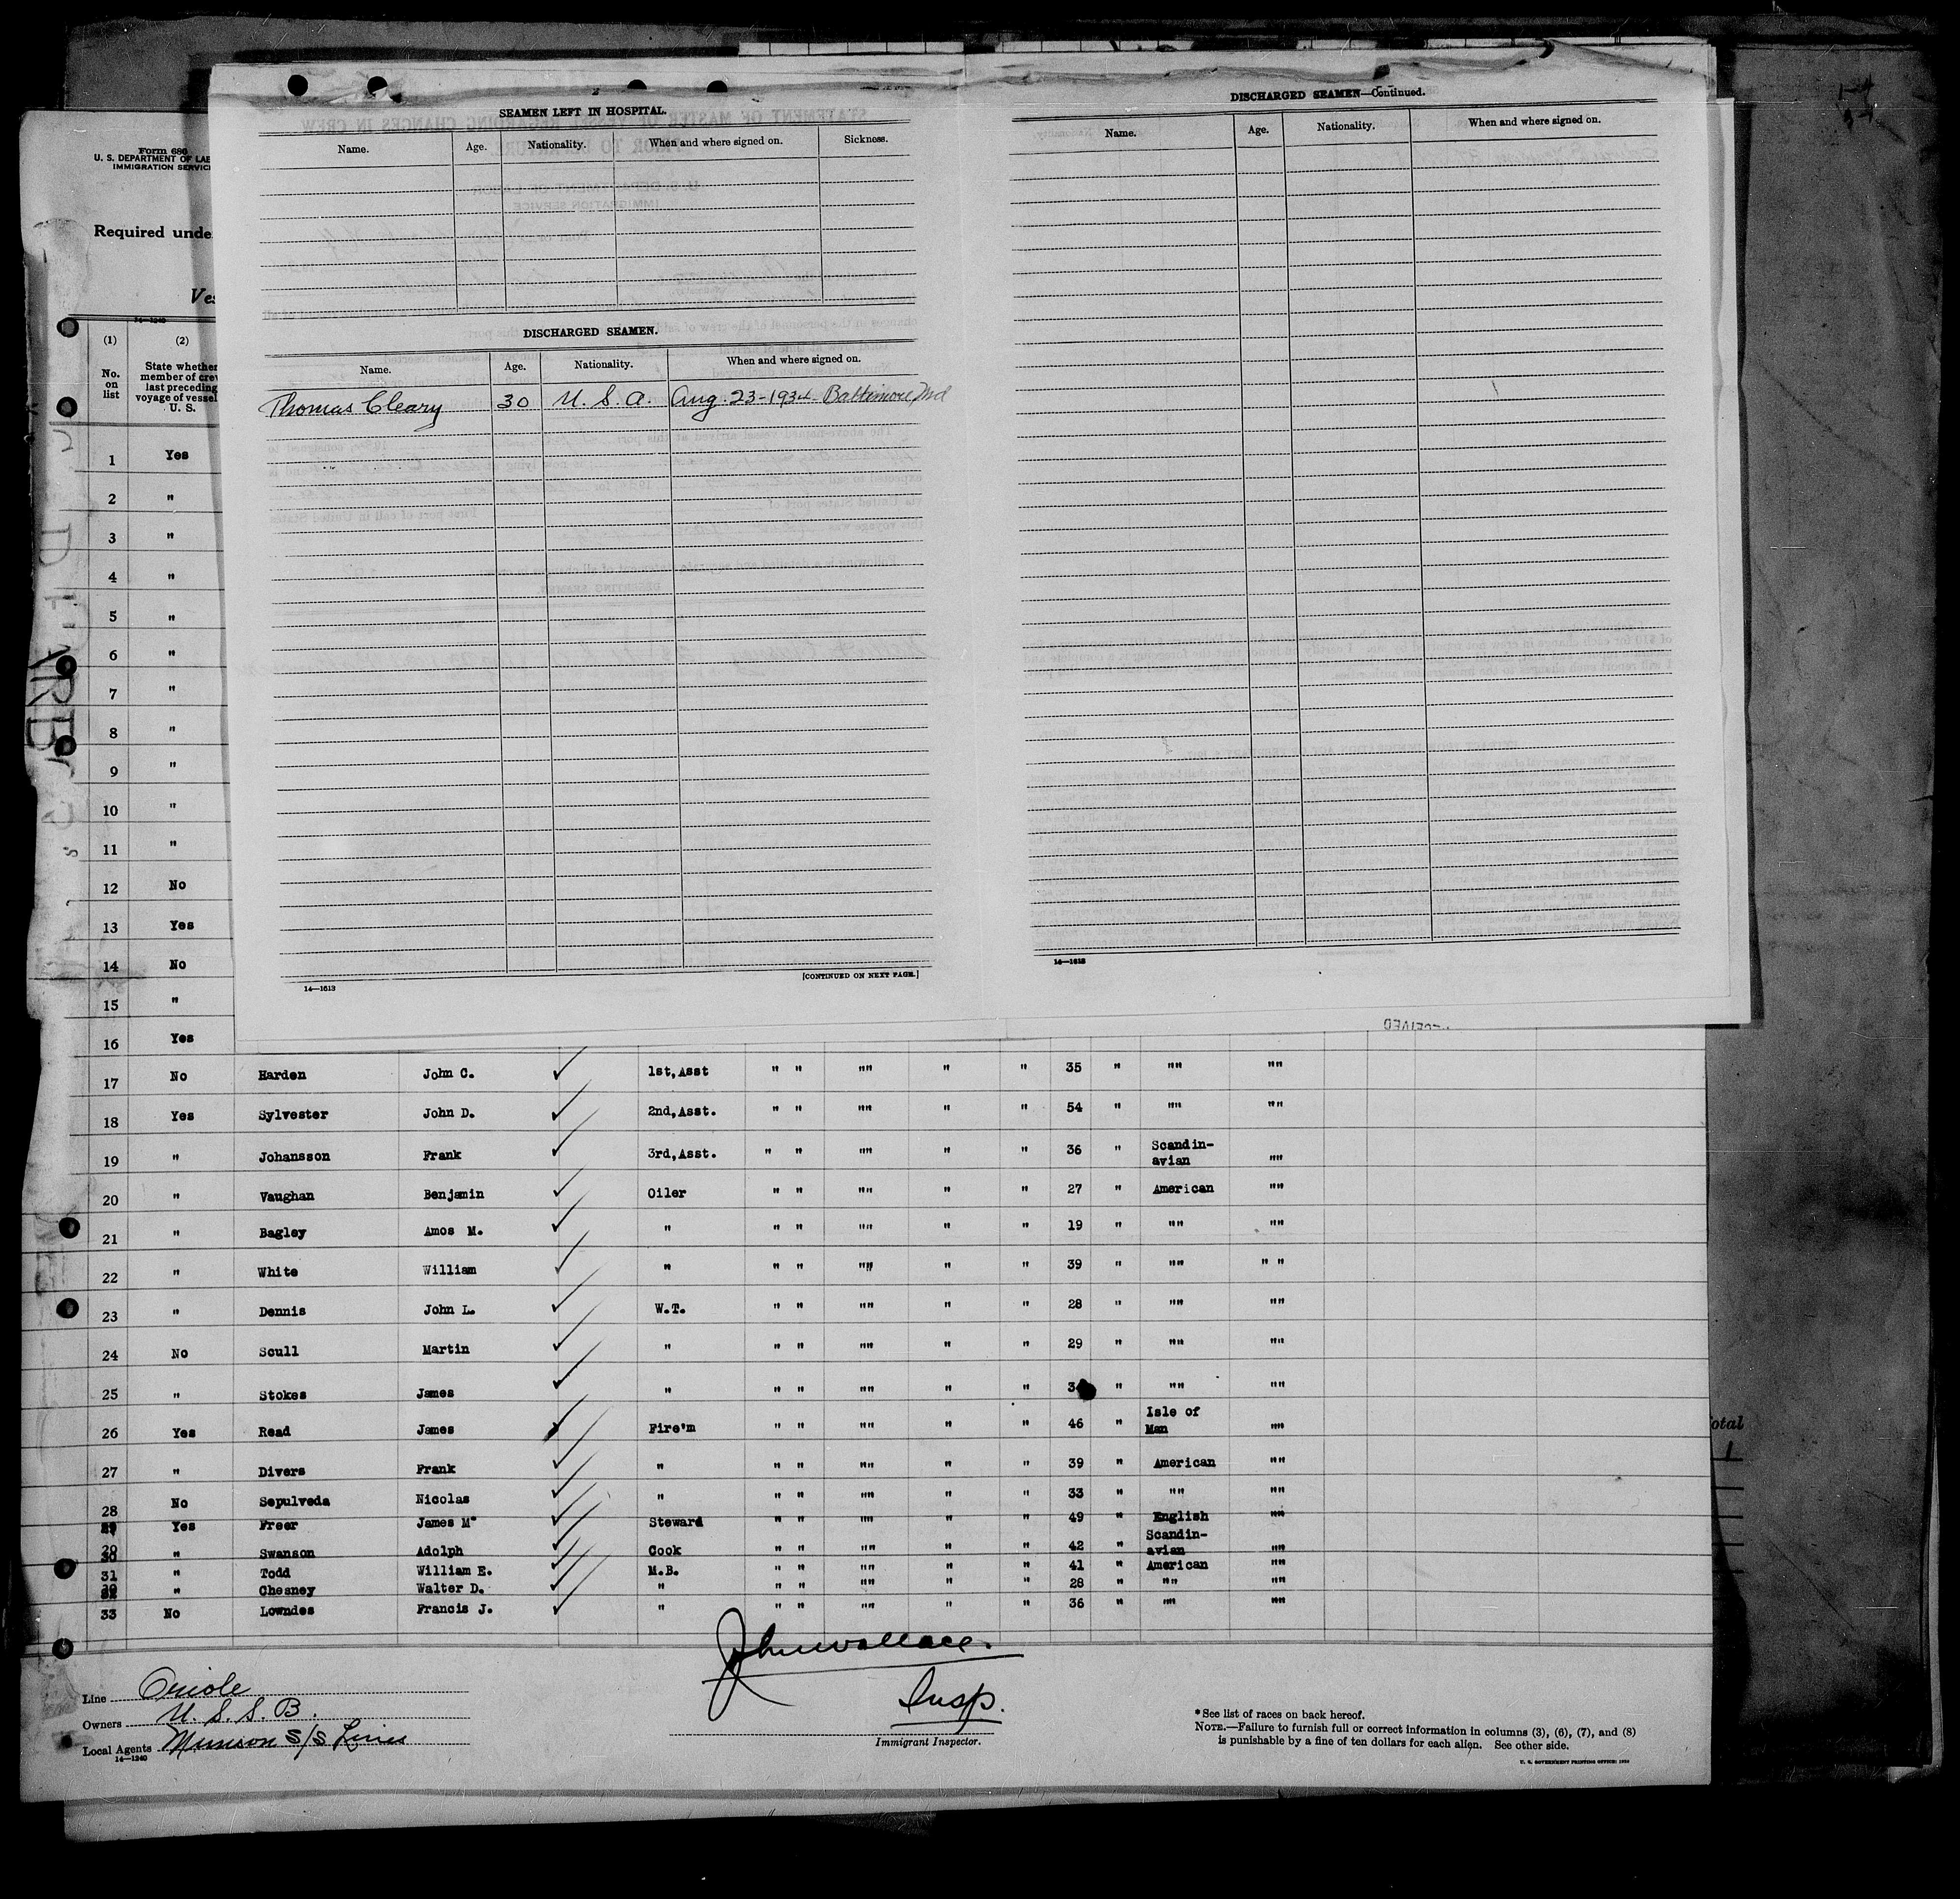 SEAMEN LEFT IN HOSPITAL.
Name. Age. Nationality. When and where signed on. Sickness.
DISCHARGED SEAMEN.
Name. Age. Nationality. When and where signed on.
Thomas Cleary 30 U. S. A. Aug. 23-1934 Baltimore, Md
[CONTINUED ON NEXT PAGE.]
14—1613
DISCHARGED SEAMEN—Continued.
Name. Age. Nationality. When and where signed on.
14—1613
Form 686
U. S. DEPARTMENT OF LAB
IMMIGRATION SERVICE
Required unde
Ves
14—1240
(1) (2)
No. on list
State whether
member of crew
last preceding
voyage of vessel
U. S.
1 Yes
2 "
3 "
4 "
5 "
6 "
7 "
8 "
9 "
10 "
11 "
12 No
13 Yes
14 No
15 "
16 Yes
17 No Harden John C. 1st,Asst " " "" " " 35 " "" ""
18 Yes Sylvester John D. 2nd,Asst. " " "" " " 54 " "" ""
19 " Johansson Frank 3rd,Asst. " " "" " " 36 " Scandin-avian ""
20 " Vaughan Benjamin Oiler " " "" " " 27 " American ""
21 " Bagley Amos M. " " " "" " " 19 " "" ""
22 " White William " " " "" " " 39 " "" " "
23 " Dennis John L. W.T. " " "" " " 28 " "" ""
24 No Scull Martin " " " "" " " 29 " "" ""
25 " Stokes James " " " "" " " " "" ""
26 Yes Read James Fire'm " " "" " " 46 " Isle of Man ""
27 " Divers Frank " " " "" " " 39 " American ""
28 No Sepulveda Nicolas " " " "" " " 33 " "" ""
29 Yes Freer James M" Steward " " "" " " 49 " English ""
30 " Swanson Adolph Cook " " "" " " 42 " Scandin-avian ""
31 " Todd William E. M.B. " " "" " " 41 " American ""
32 " Chesney Walter D. " " " "" " " 28 " "" ""
33 No Lowndes Francis J. " " " "" " " 36 " "" ""
John Wallace.
Insp.
Immigrant Inspector.
Line Oriole
Owners U. S. S. B.
Local Agents Munson S/S Lines
14—1240
*See list of races on back hereof.
NOTE.—Failure to furnish full or correct information in columns (3), (6), (7), and (8)
is punishable by a fine of ten dollars for each alien. See other side.
U. S. GOVERNMENT PRINTING OFFICE:
otal